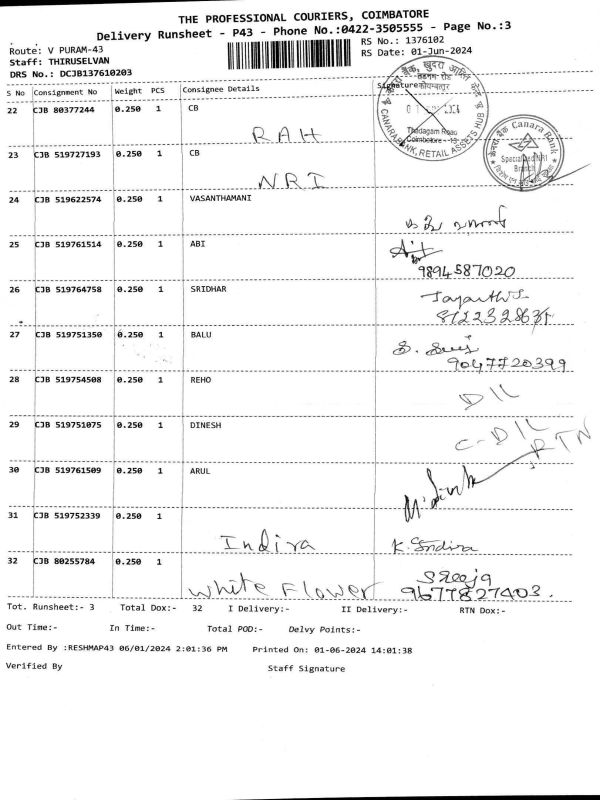 THE PROFESSIONAL COURIERS, COIMBATORE
Delivery Runsheet - P43 - Phone No.:0422-3505555 - Page No.:3
Route: V PURAM-43
RS No.: 1376102
Staff: THIRUSELVAN
RS Date: 01-Jun-2024
DRS No.: DCJB137610203
S No Consignment No Weight PCS Consignee Details Signature
22 CJB 80377244 0.250 1 CB
RAH
केनरा बैंक, खुदरा आस्ति केन्द्र
तडागम रोड
कोयम्बत्तूर
2024
Thadagam Road
Coimbatore
CANARA BANK, RETAIL ASSETS HUB
23 CJB 519727193 0.250 1 CB
NRI
केनरा बैंक Canara Bank
Specialized NRI
Branch
24 CJB 519622574 0.250 1 VASANTHAMANI
25 CJB 519761514 0.250 1 ABI
9894587020
26 CJB 519764758 0.250 1 SRIDHAR
27 CJB 519751350 0.250 1 BALU
9047720399
28 CJB 519754508 0.250 1 REHO
D/L
29 CJB 519751075 0.250 1 DINESH
C-D/L
RTN
30 CJB 519761509 0.250 1 ARUL
31 CJB 519752339 0.250 1
Indira K. Indira
32 CJB 80255784 0.250 1
White Flower Sreeja
9677827403.
Tot. Runsheet:- 3 Total Dox:- 32 I Delivery:- II Delivery:- RTN Dox:-
Out Time:- In Time:- Total POD:- Delvy Points:-
Entered By :RESHMAP43 06/01/2024 2:01:36 PM Printed On: 01-06-2024 14:01:38
Verified By Staff Signature